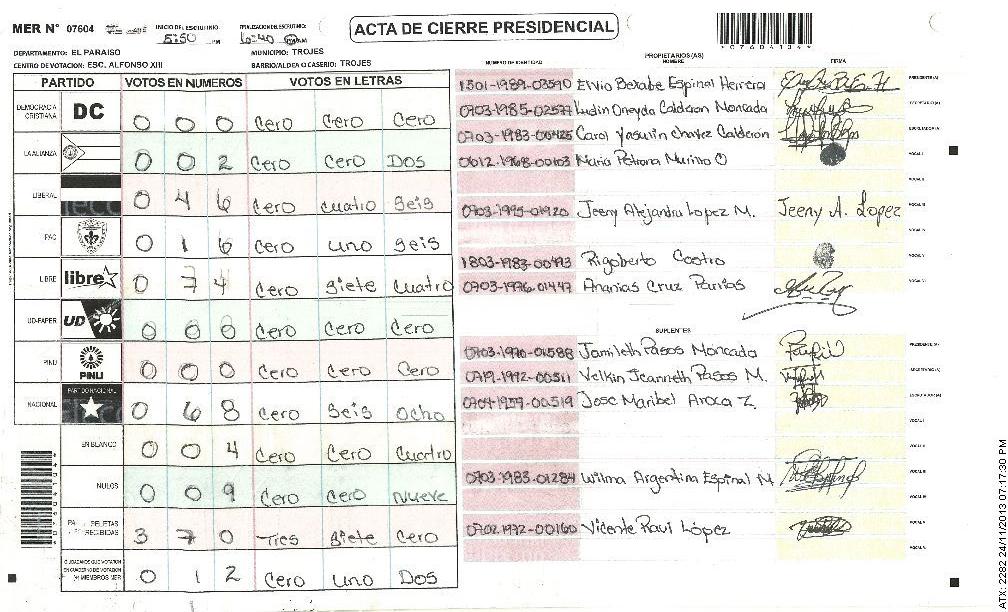 MER N° 07604
INICIO DEL ESCRUTINIO
5:50 PM
FINALIZACION DEL ESCRUTINIO:
6:40 PM
ACTA DE CIERRE PRESIDENCIAL
DEPARTAMENTO: EL PARAISO
MUNICIPIO: TROJES
CENTRO DE VOTACION: ESC. ALFONSO XIII
BARRIO/ALDEA O CASERIO: TROJES
PARTIDO VOTOS EN NUMEROS VOTOS EN LETRAS
DEMOCRACIA CRISTIANA DC 0 0 0 Cero Cero Cero
LA ALIANZA 0 0 2 Cero Cero Dos
LIBERAL 0 4 6 Cero cuatro Seis
PAC 0 1 6 Cero uno Seis
LIBRE libre 0 7 4 Cero Siete Cuatro
UD-FAPER UD 0 0 0 Cero Cero Cero
PINU PINU 0 0 0 Cero Cero Cero
NACIONAL PARTIDO NACIONAL 0 6 8 Cero Seis Ocho
EN BLANCO 0 0 4 Cero Cero Cuatro
NULOS 0 0 9 Cero Cero nueve
RECIBIDAS 3 7 0 Tres Siete Cero
CIUDADANOS QUE VOTARON EN CUADERNO DE VOTACION (+) MIEMBROS MER 0 1 2 Cero uno Dos
PROPIETARIOS (AS)
NUMERO DE IDENTIDAD NOMBRE FIRMA
1501-1989-03590 Elvio Berabe Espinal Herrera PRESIDENTE(A)
0703-1985-02577 Ludin Oneyda Calderon Moncada SECRETARIO(A)
0703-1983-00425 Carol Yasurin Chavez Calderon ESCRUTADOR(A)
0612-1968-00103 Maria Petrona Murillo O VOCAL I
VOCAL II
0703-1995-01920 Jeeny Alejandra Lopez M. Jeeny A. Lopez VOCAL III
VOCAL IV
1803-1983-00493 Rigoberto Castro VOCAL V
0703-1976-01447 Ananias Cruz VOCAL VI
SUPLENTES
0703-1990-01588 Jamileth Pasos Moncada PRESIDENTE(A)
0719-1992-00511 Velkin Jeanneth Pasos M. SECRETARIO(A)
0704-1959-00519 Jose Maribel Aroca Z. ESCRUTADOR(A)
VOCAL I
VOCAL II
0703-1983-01284 Wilma Argentina Espinal M VOCAL III
VOCAL IV
0702-1972-00160 Vicente Raul López VOCAL V
VOCAL VI
ATX: 2282 24/11/2013 07:17:30 PM